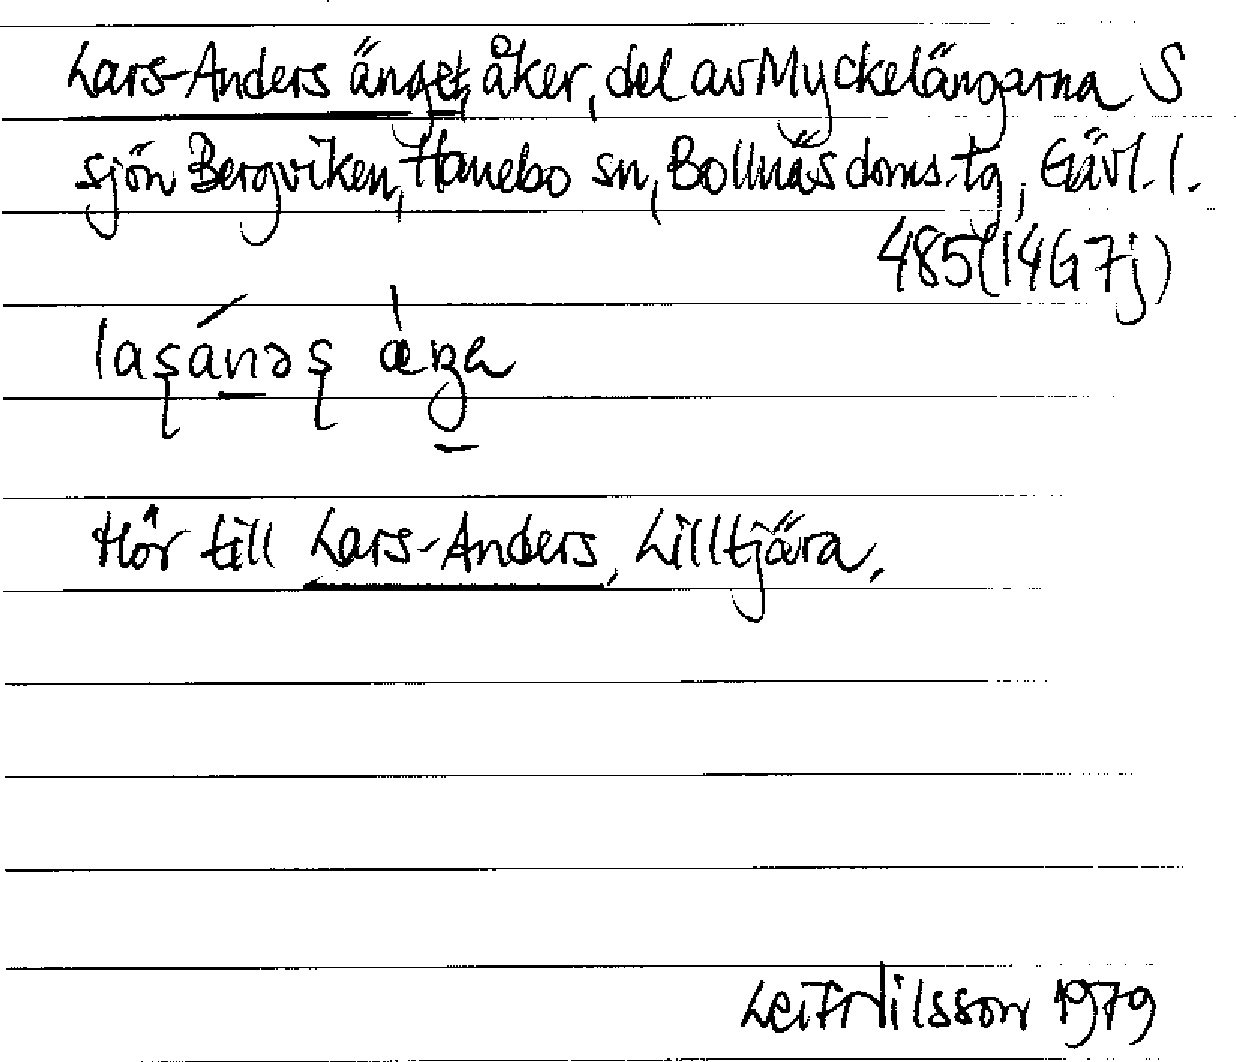 Lars-Anders änget, åker, del av Myckelängarna S
sjön Bergviken, Hanebo sn, Bollnäs doms.tg, Gävl. l.
485 (14G 7j)
laʂánəʂ ǽŋa
Hör till Lars-Anders, Lilltjära.
Leif Nilsson 1979